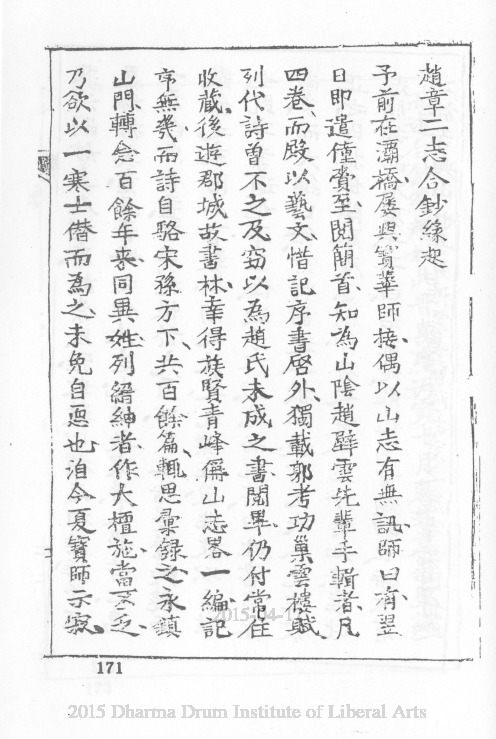 趙章二志合鈔緣起
予前在灞橋屢與寶華師接偶以山志有無訊師曰有翌
日即遣僮賫至閱簡首知為山陰趙壁雲先輩手輯者凡
四卷而殿以藝文惜記序書啓外獨載郭考功巢雲樓賦
列代詩曾不之及窃以為趙氏未成之書閱畢仍付常住
收藏後遊郡城故書林幸得族賢青峰僻山志畧一編記
帝無幾而詩自駱宋孫方下共百餘篇輒思彙錄之永鎮
山門轉念百餘年來同異姓列縉紳者作大檀施當不乏
乃欲以一寒士僭而為之未免自恧也洎今夏寶師示寂
171
2015-04-1
2015 Dharma Drum Institute of Liberal Arts